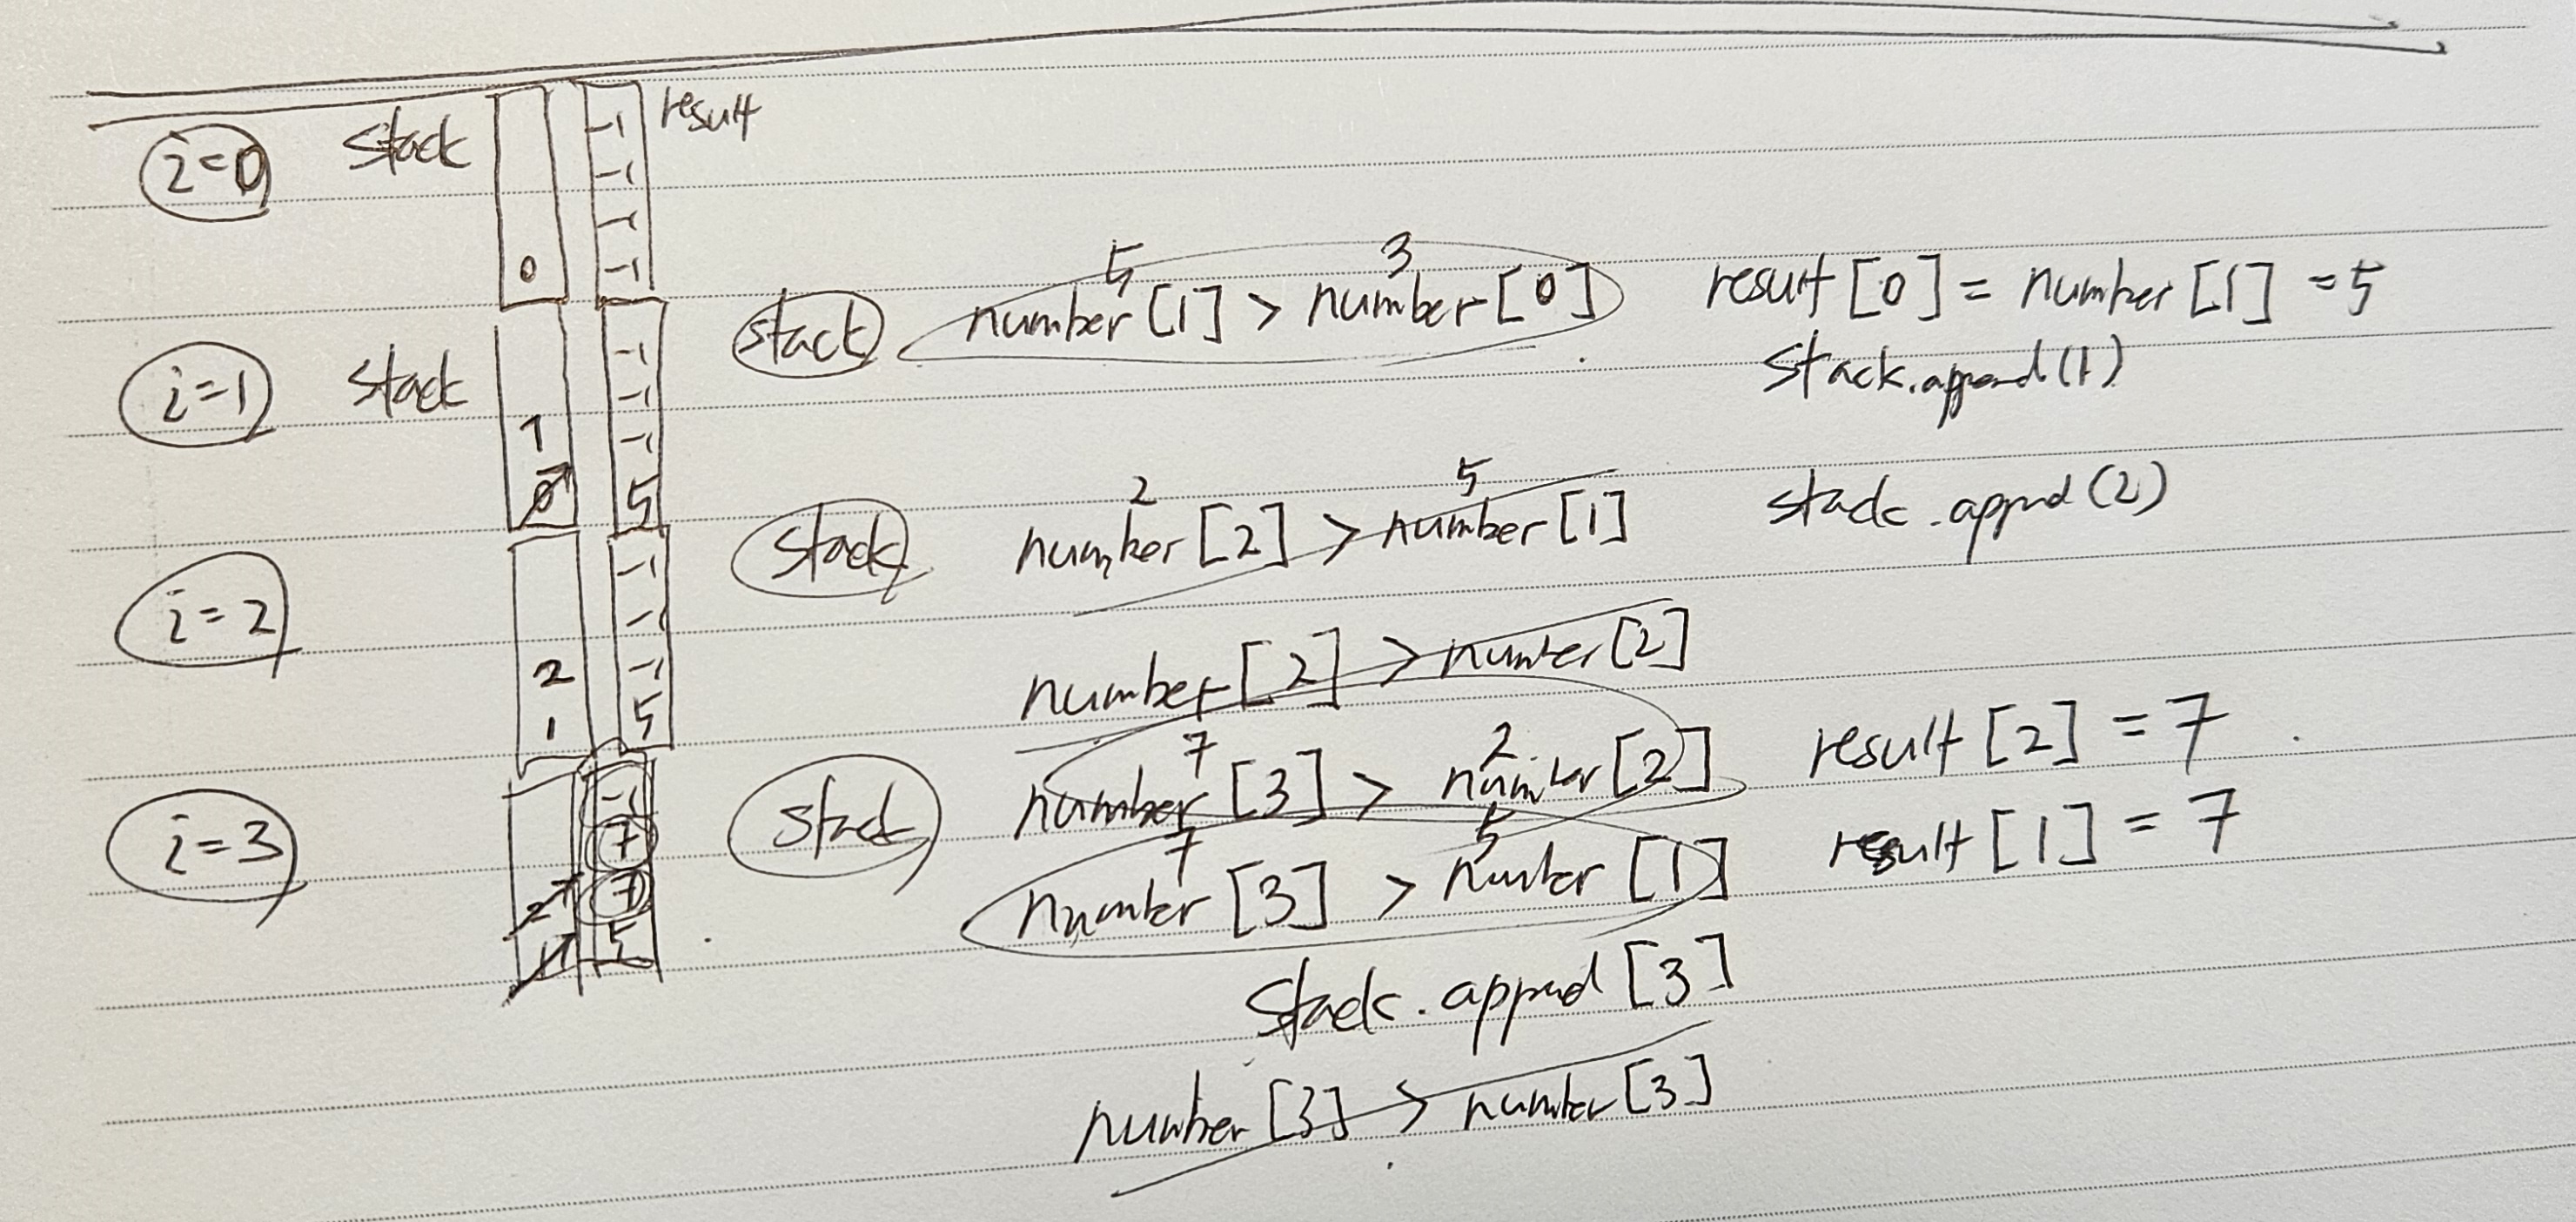 i=0 stack 0 -1 -1 -1 -1 result
5 3
i=1 stack 1 0 -1 -1 -1 5 stack number[1] > number[0] result[0] = number[1] = 5
stack.append(1)
2 5
i=2 2 1 -1 -1 -1 5 stack number[2] > number[1] stack.append(2)
number[2] > number[2]
7 2
i=3 2 1 -1 7 7 5 stack number[3] > number[2] result[2] = 7
7 5
number[3] > number[1] result[1] = 7
stack.append[3]
number[3] > number[3]